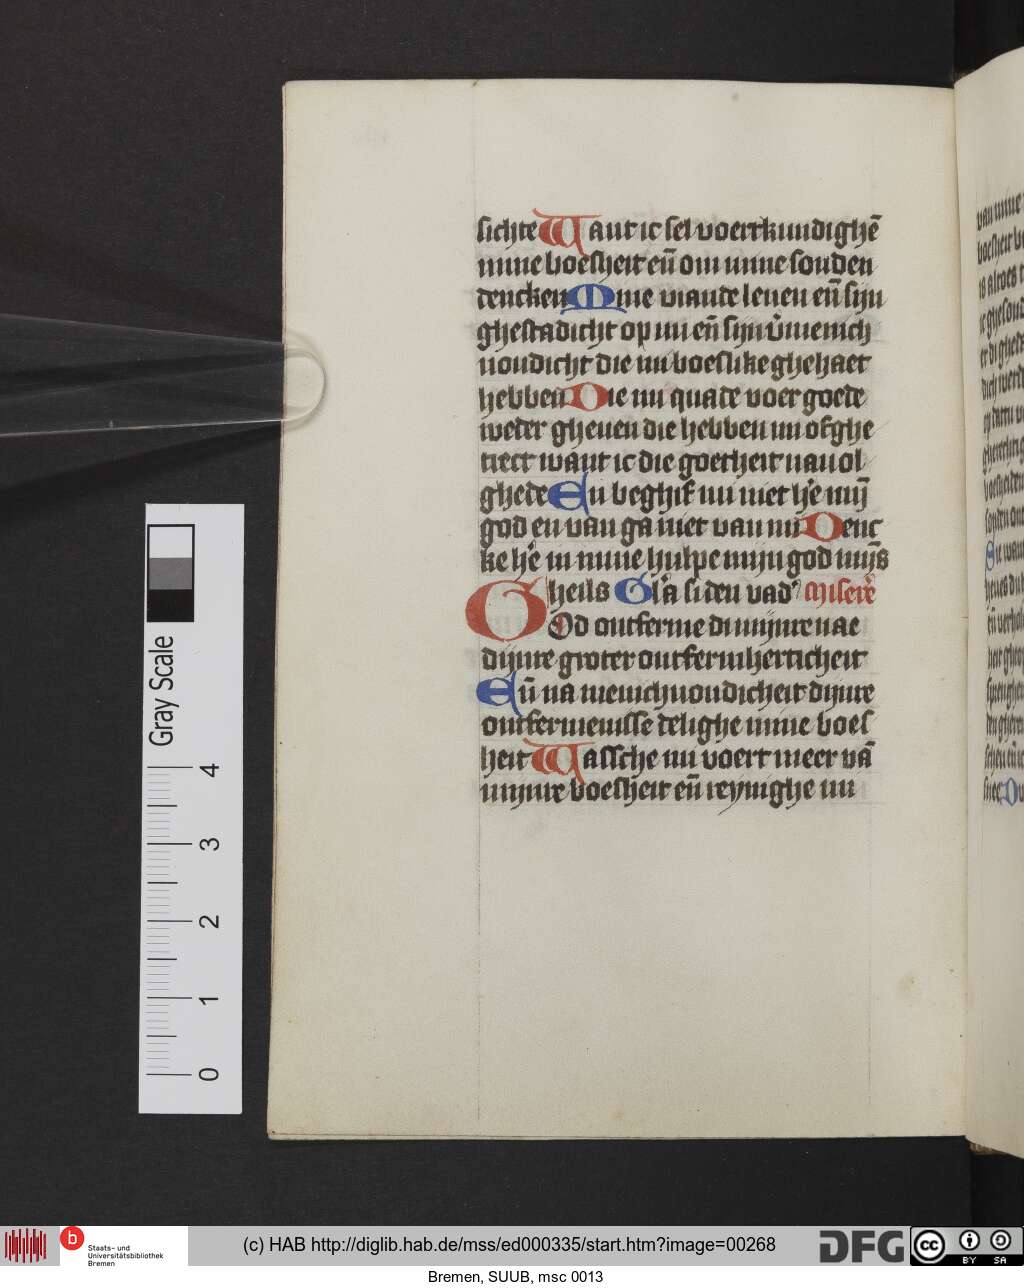 sichte Want ic sel voertkundighē
mine boesheit eñ om mine sonden
dencken Mine viande leven eñ sijn
ghestadicht op mi eñ sijn v̉menich
voudicht die mi boeslike ghehaet
hebben Die mi quade voer goede
weder gheven die hebben mi ofghe
trect want ic die goetheit navol
ghede En beghif mi niet he᷒ mij̄
god en van ga niet van mi Denc
ke he᷒ in mine hulpe mijn god mijs
heils Gl'a si den vad' Misere᷒
God ontferme di mijnre nae
dijnre groter ontfermherticheit
Eñ na menichvoudicheit dijnre
ontfermenisse delighe mine boes
heit Wassche mi voert meer vā
mijnre boesheit eñ reynighe mi
Gray Scale
4
3
2
1
0
b
Staats- und
Universitätsbibliothek
Bremen
(c) HAB http://diglib.hab.de/mss/ed000335/start.htm?image=00268
DFG
cc
BY SA
Bremen, SUUB, msc 0013